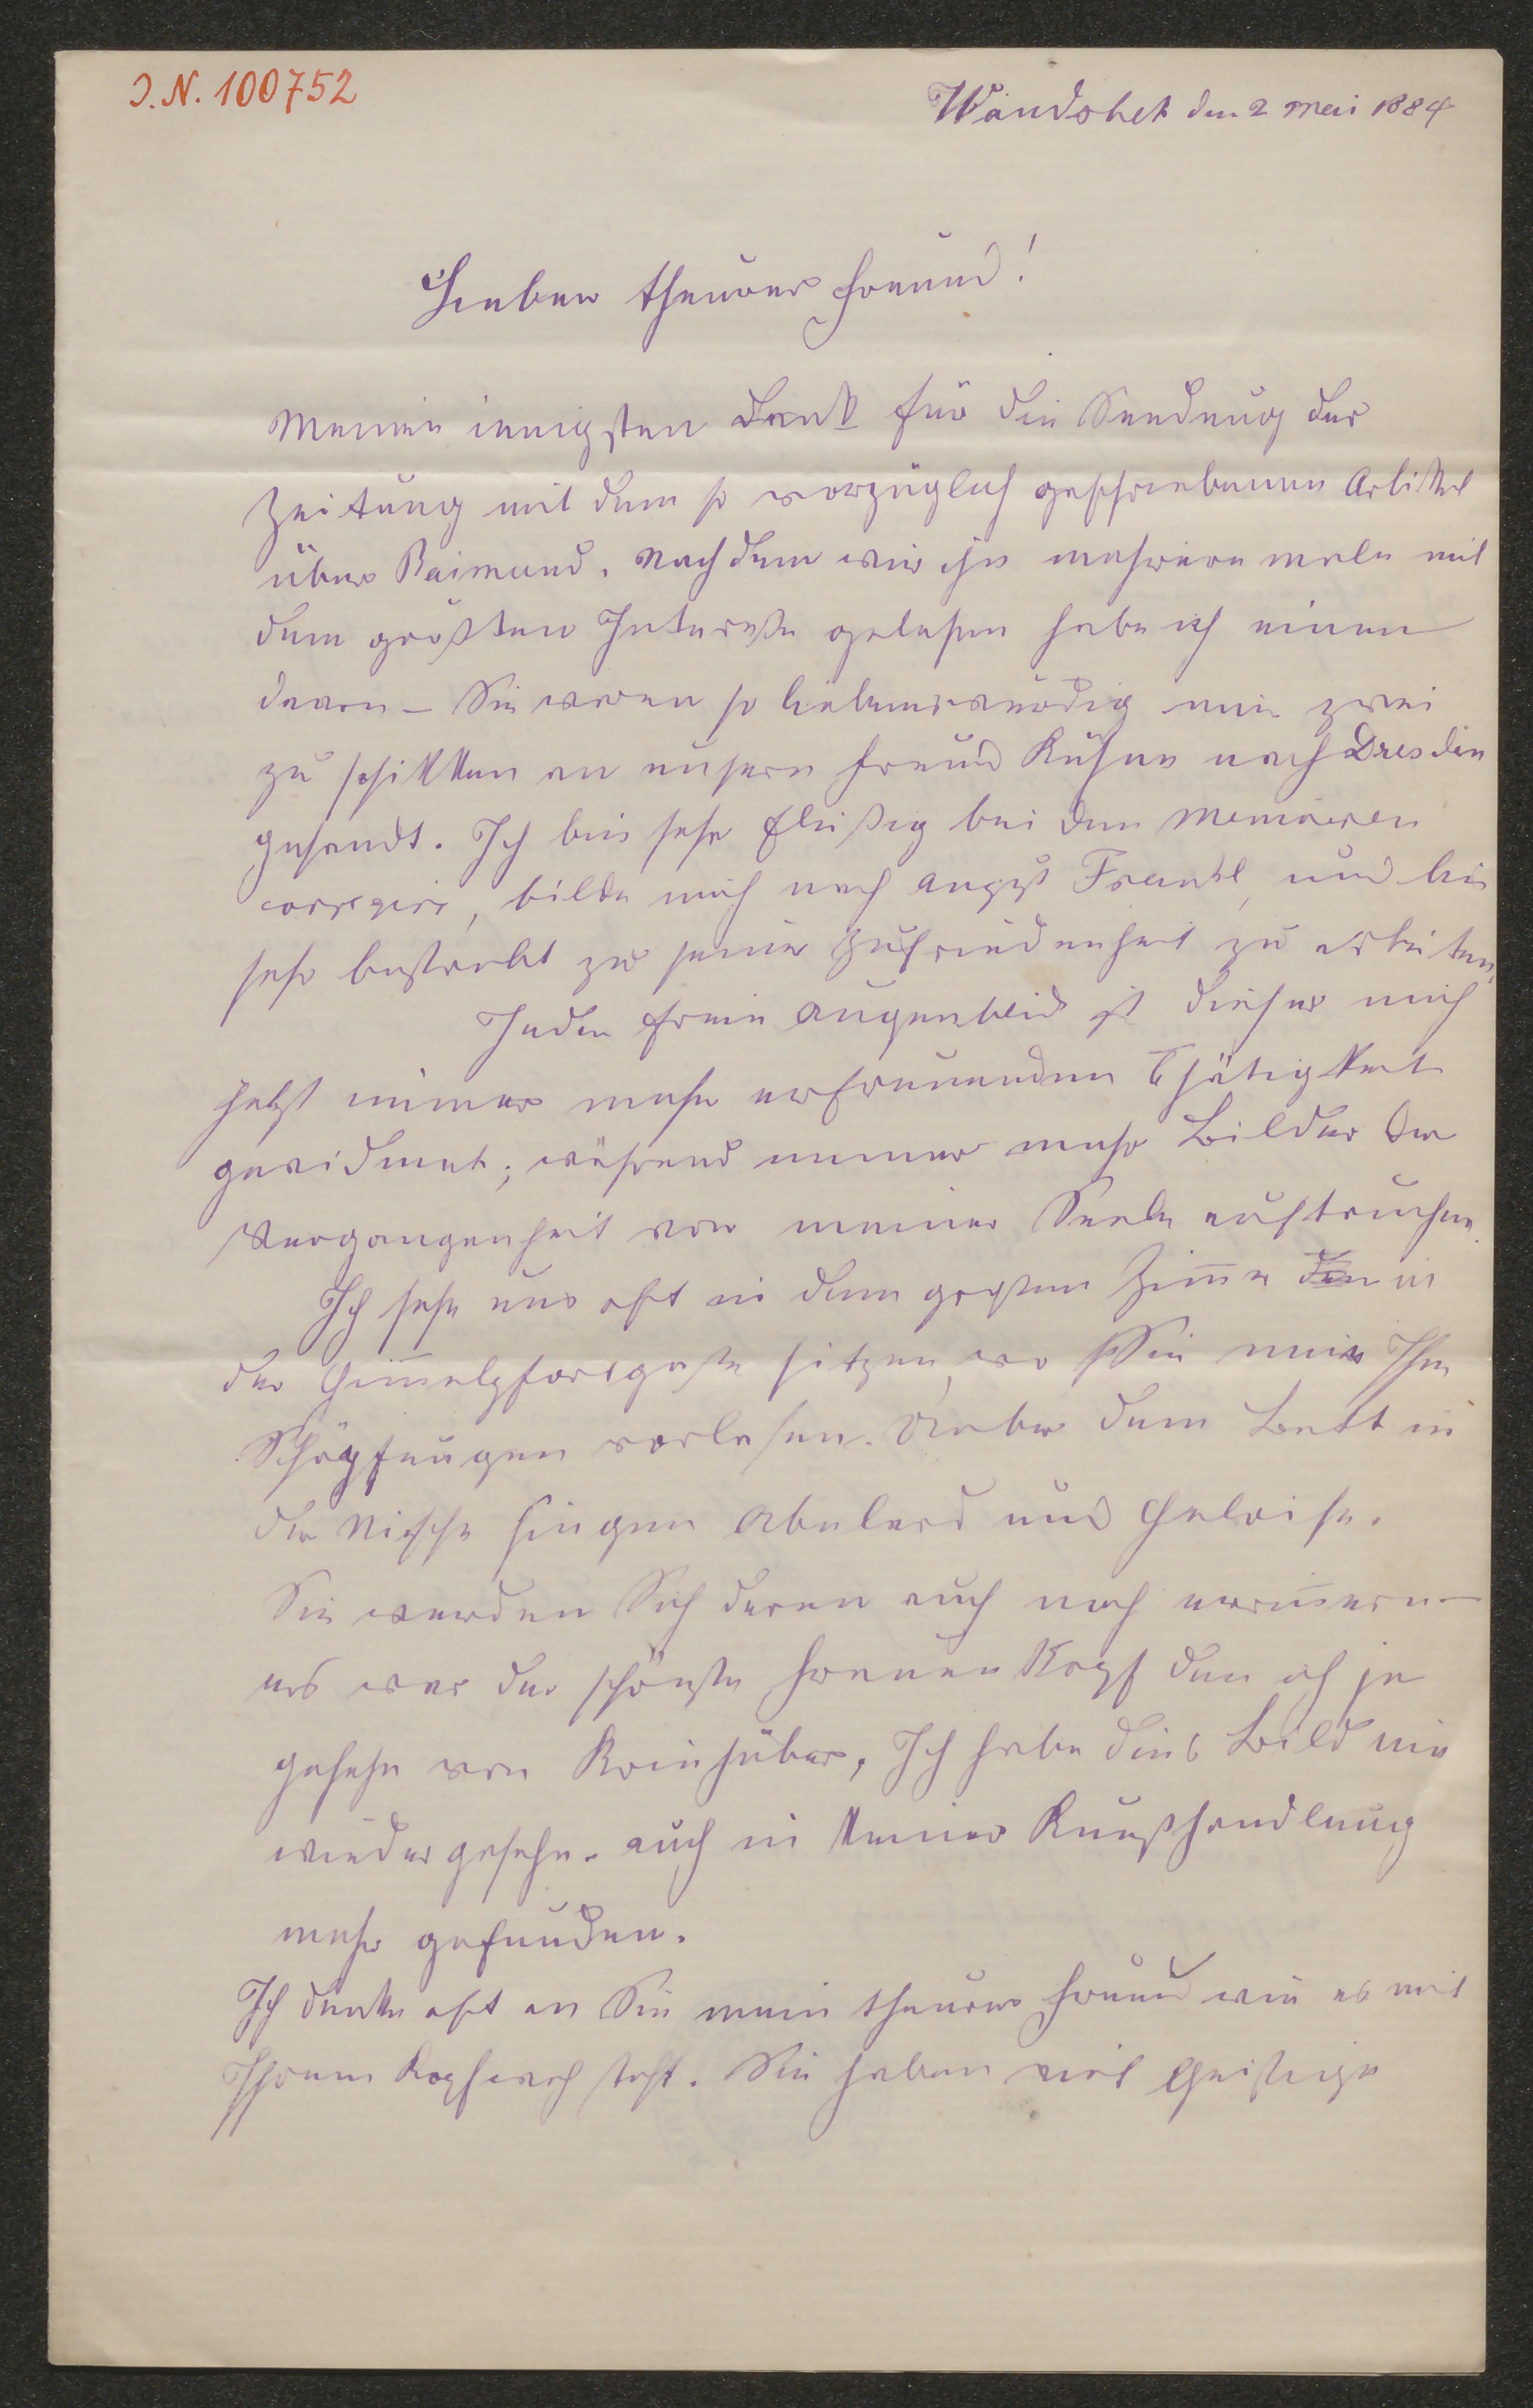 I. N. 100752
Wandsbek den 2 Mai 1884
Lieber theurer Freund!
Meinen innigsten Dank für die Sendung der
Zeitung mit dem so vorzüglich geschriebenen Artikel
über Raimund. Nachdem wir ihn mehrere male mit
dem größten Intereße gelesen habe ich einen
davon – Sie waren so liebenswürdig mir zwei
zu schikken an unsern Freund Kühne nach Dresden
gesandt. Ich bin sehr fleißig bei den Memoiren
corregire, bilde mich nach Frankl, und bin
sehr bestrebt zu seiner Zufriedenheit zu arbeiten,
Jeder freie Augenblick ist dieser mich
jetzt immer mehr erfreuenden Thätigkeit
gewidmet; während immer mehr Bilder der
Vergangenheit vor meiner Seele auftauchen.
Ich sehe uns oft in dem großen Zim̅er in
der Him̅elpfortgaße sitzen, wo Sie mir Ihre
Schöpfungen vorlasen. Ueber dem Bett in
der Nische hingen Abelard und Heloise.
Sie werden Sich deren auch noch erin̅ern –
es war der schönste Frauen Kopf den ich je
gesehn von Kriehuber, Ich habe dies Bild nie
wieder gesehn. auch in keiner Kunsthandlung
mehr gefunden.
Ich denke oft an Sie mein theurer Freund wie es mit
Ihrem Kopfweh steht. Sie haben viel Geistige